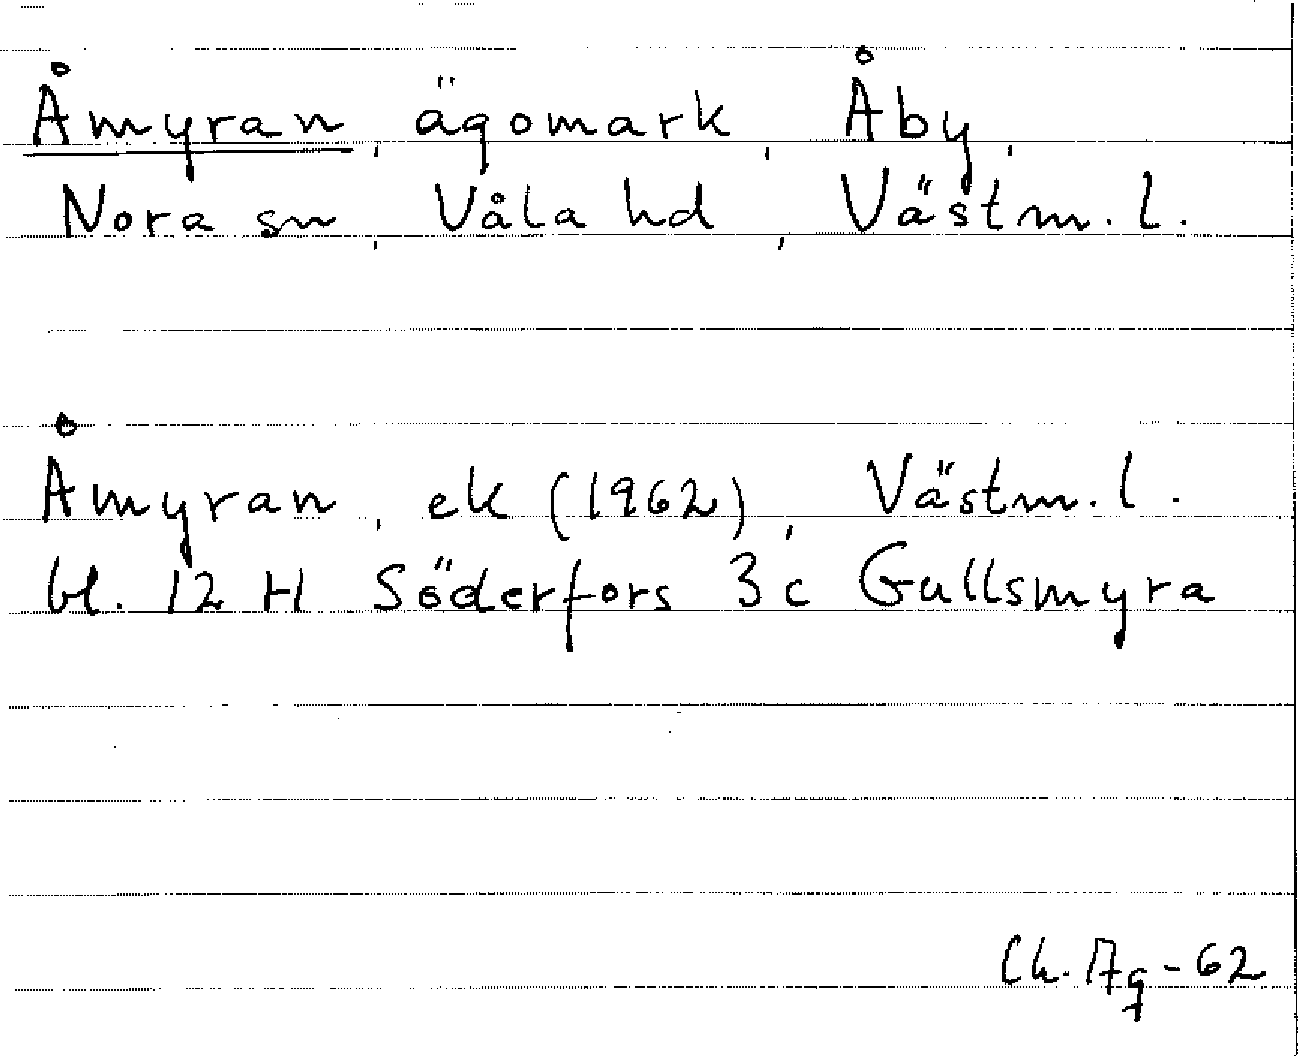 Åmyran, ägomark, Åby,
Nora sn, Våla hd, Västm. l.
Åmyran, ek (1962), Västm. l.
bl. 12 H Söderfors 3 c Gullsmyra
Ch. Ag -62